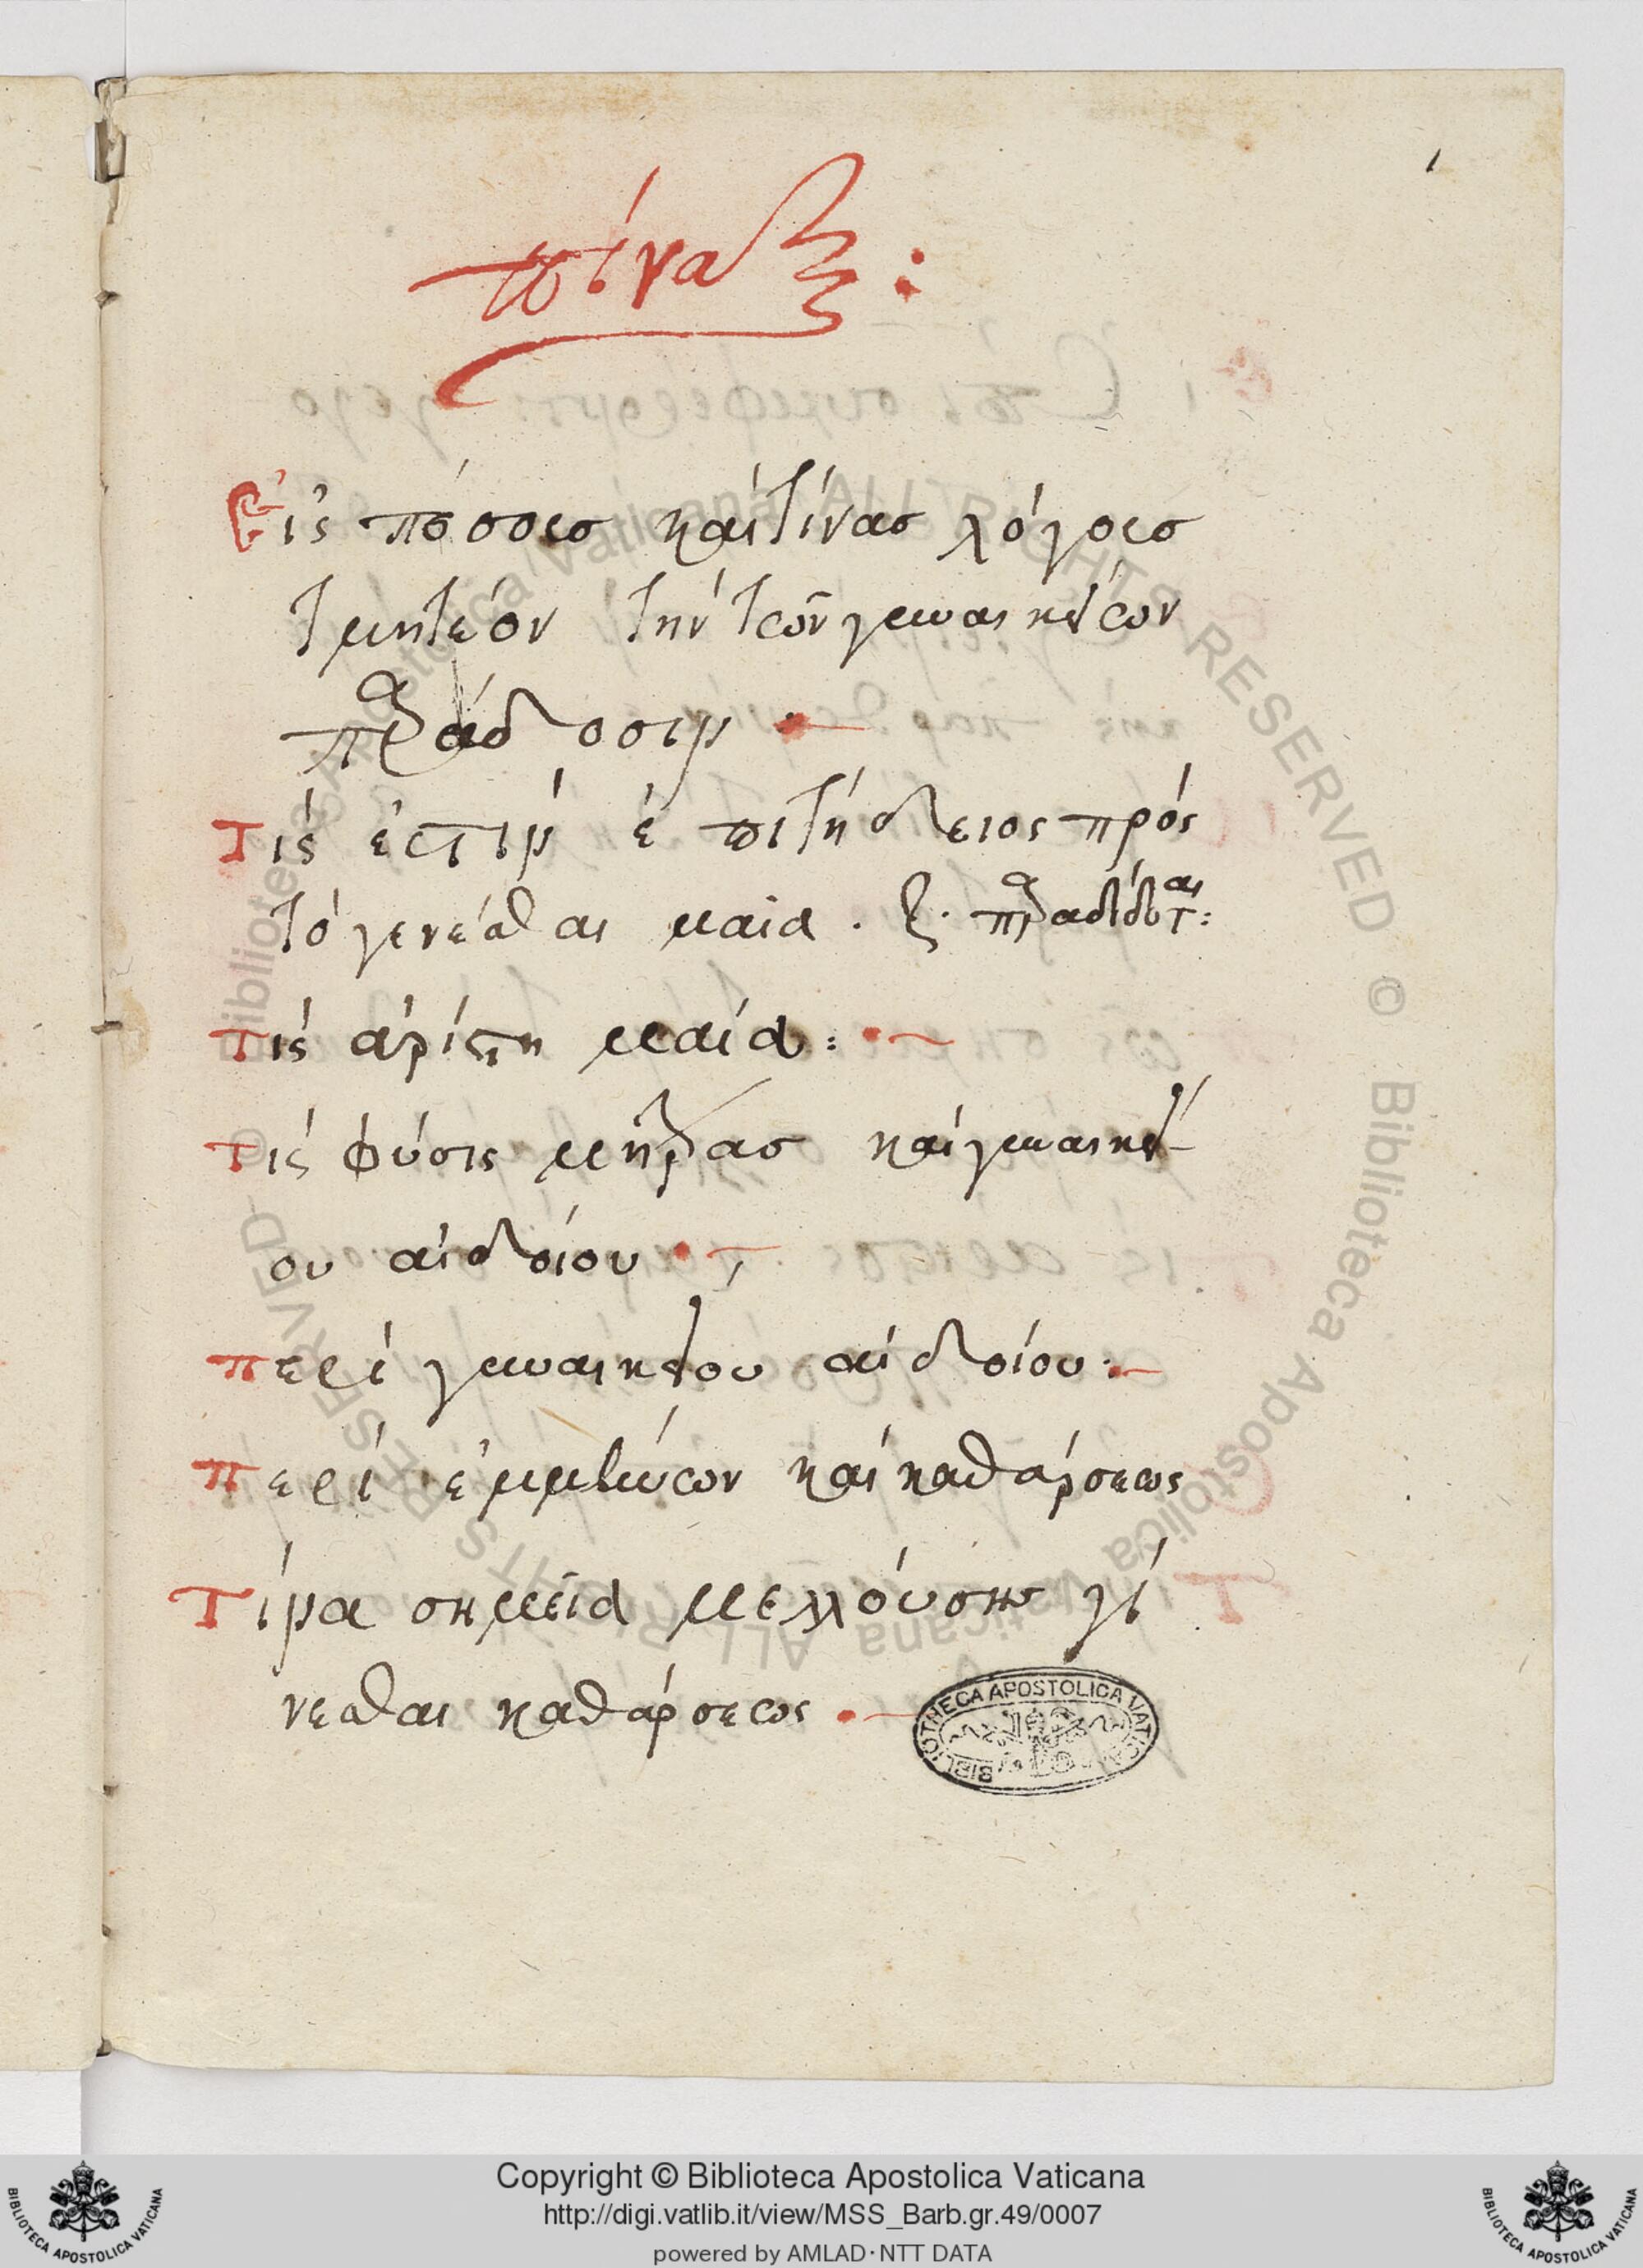 1
πίναξ :
Εἰς πόσους καὶ τίνας λόγους
τμητέον τὴν τῶν γυναικείων
παράδοσιν
τίς ἐστιν ἐπιτήδειος πρὸς
τὸ γενέσθαι μαῖα . παραδίδοται :
τίς ἀρίστη μαῖα :
τίς φύσις μήτρας καὶ γυναικεί
ου αἰδοίου
περὶ γυναικείου αἰδοίου :
περὶ ἐμμήνων καὶ καθάρσεως
τίνα σημεῖα μελλούσης γί
νεσθαι καθάρσεως
BIBLIOTHECA APOSTOLICA VATICANA
© Biblioteca Apostolica Vaticana ALL RIGHTS RESERVED
© Biblioteca Apostolica Vaticana ALL RIGHTS RESERVED
Copyright © Biblioteca Apostolica Vaticana
http://digi.vatlib.it/view/MSS_Barb.gr.49/0007
powered by AMLAD·NTT DATA
BIBLIOTECA APOSTOLICA VATICANA
BIBLIOTECA APOSTOLICA VATICANA